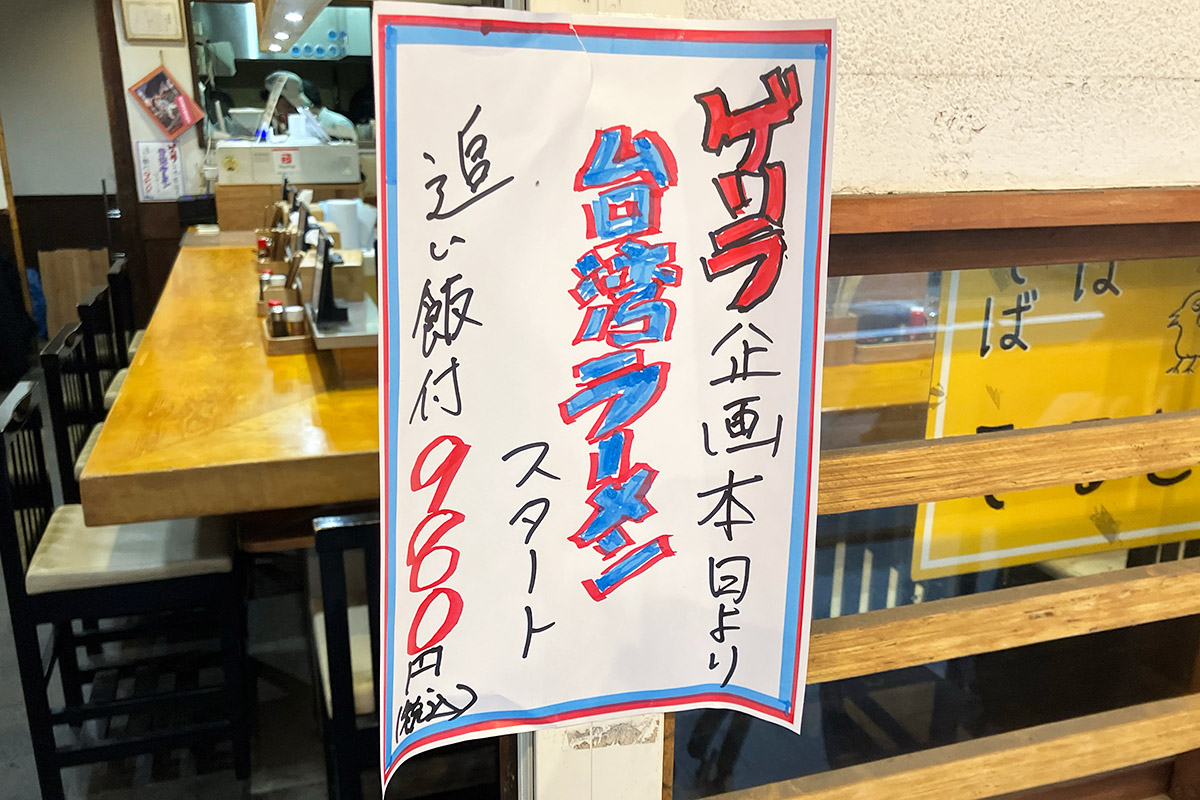 ゲリラ企画本日より
台湾ラーメン
スタート
追い飯付980円(税込)
そば
は